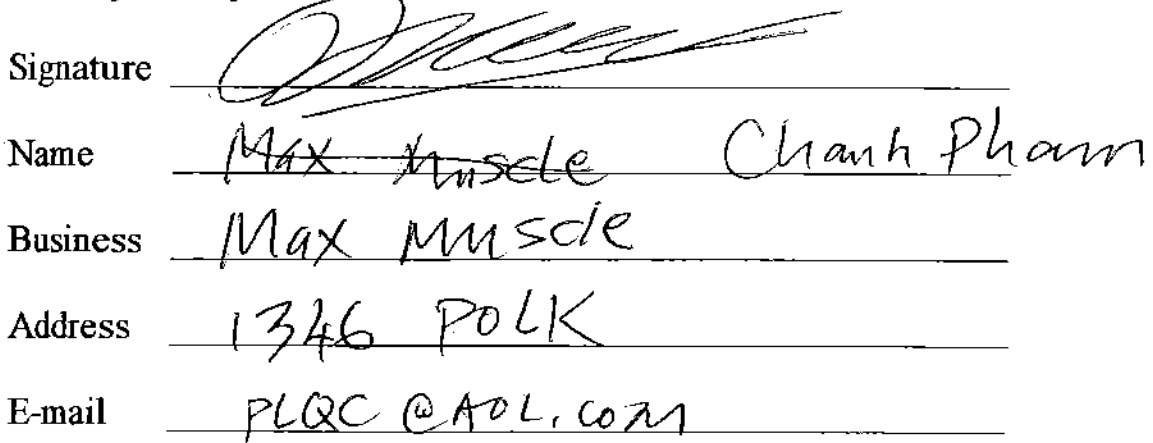 Signature
Name Max Muscle Chanh Pham
Business Max Muscle
Address 1346 POLK
E-mail PLQC @AOL.COM